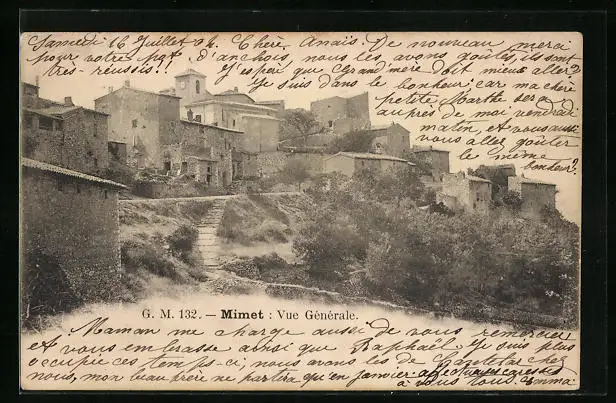 Samedi 16 Juillet 04. Chère Anaïs. De nouveau merci
pour votre pot d'anchois, nous les avons goûtés, ils sont
très-réussis!!! J'espère que Grand'mère doit mieux aller?
Je suis dans le bonheur! car ma chère
petite Marthe sera
auprès de moi vendredi
matin, et vous aussi
vous allez goûter
le même
bonheur.
G. M. 132. - Mimet : Vue Générale.
Maman me charge aussi de vous remercier
et vous embrasse ainsi que Raphaël. Je suis plus
occupée ces temps-ci; nous avons les de chez
nous, mon beau père ne partira qu'en janvier. affectueuses caresses
à vous tous. Emma.